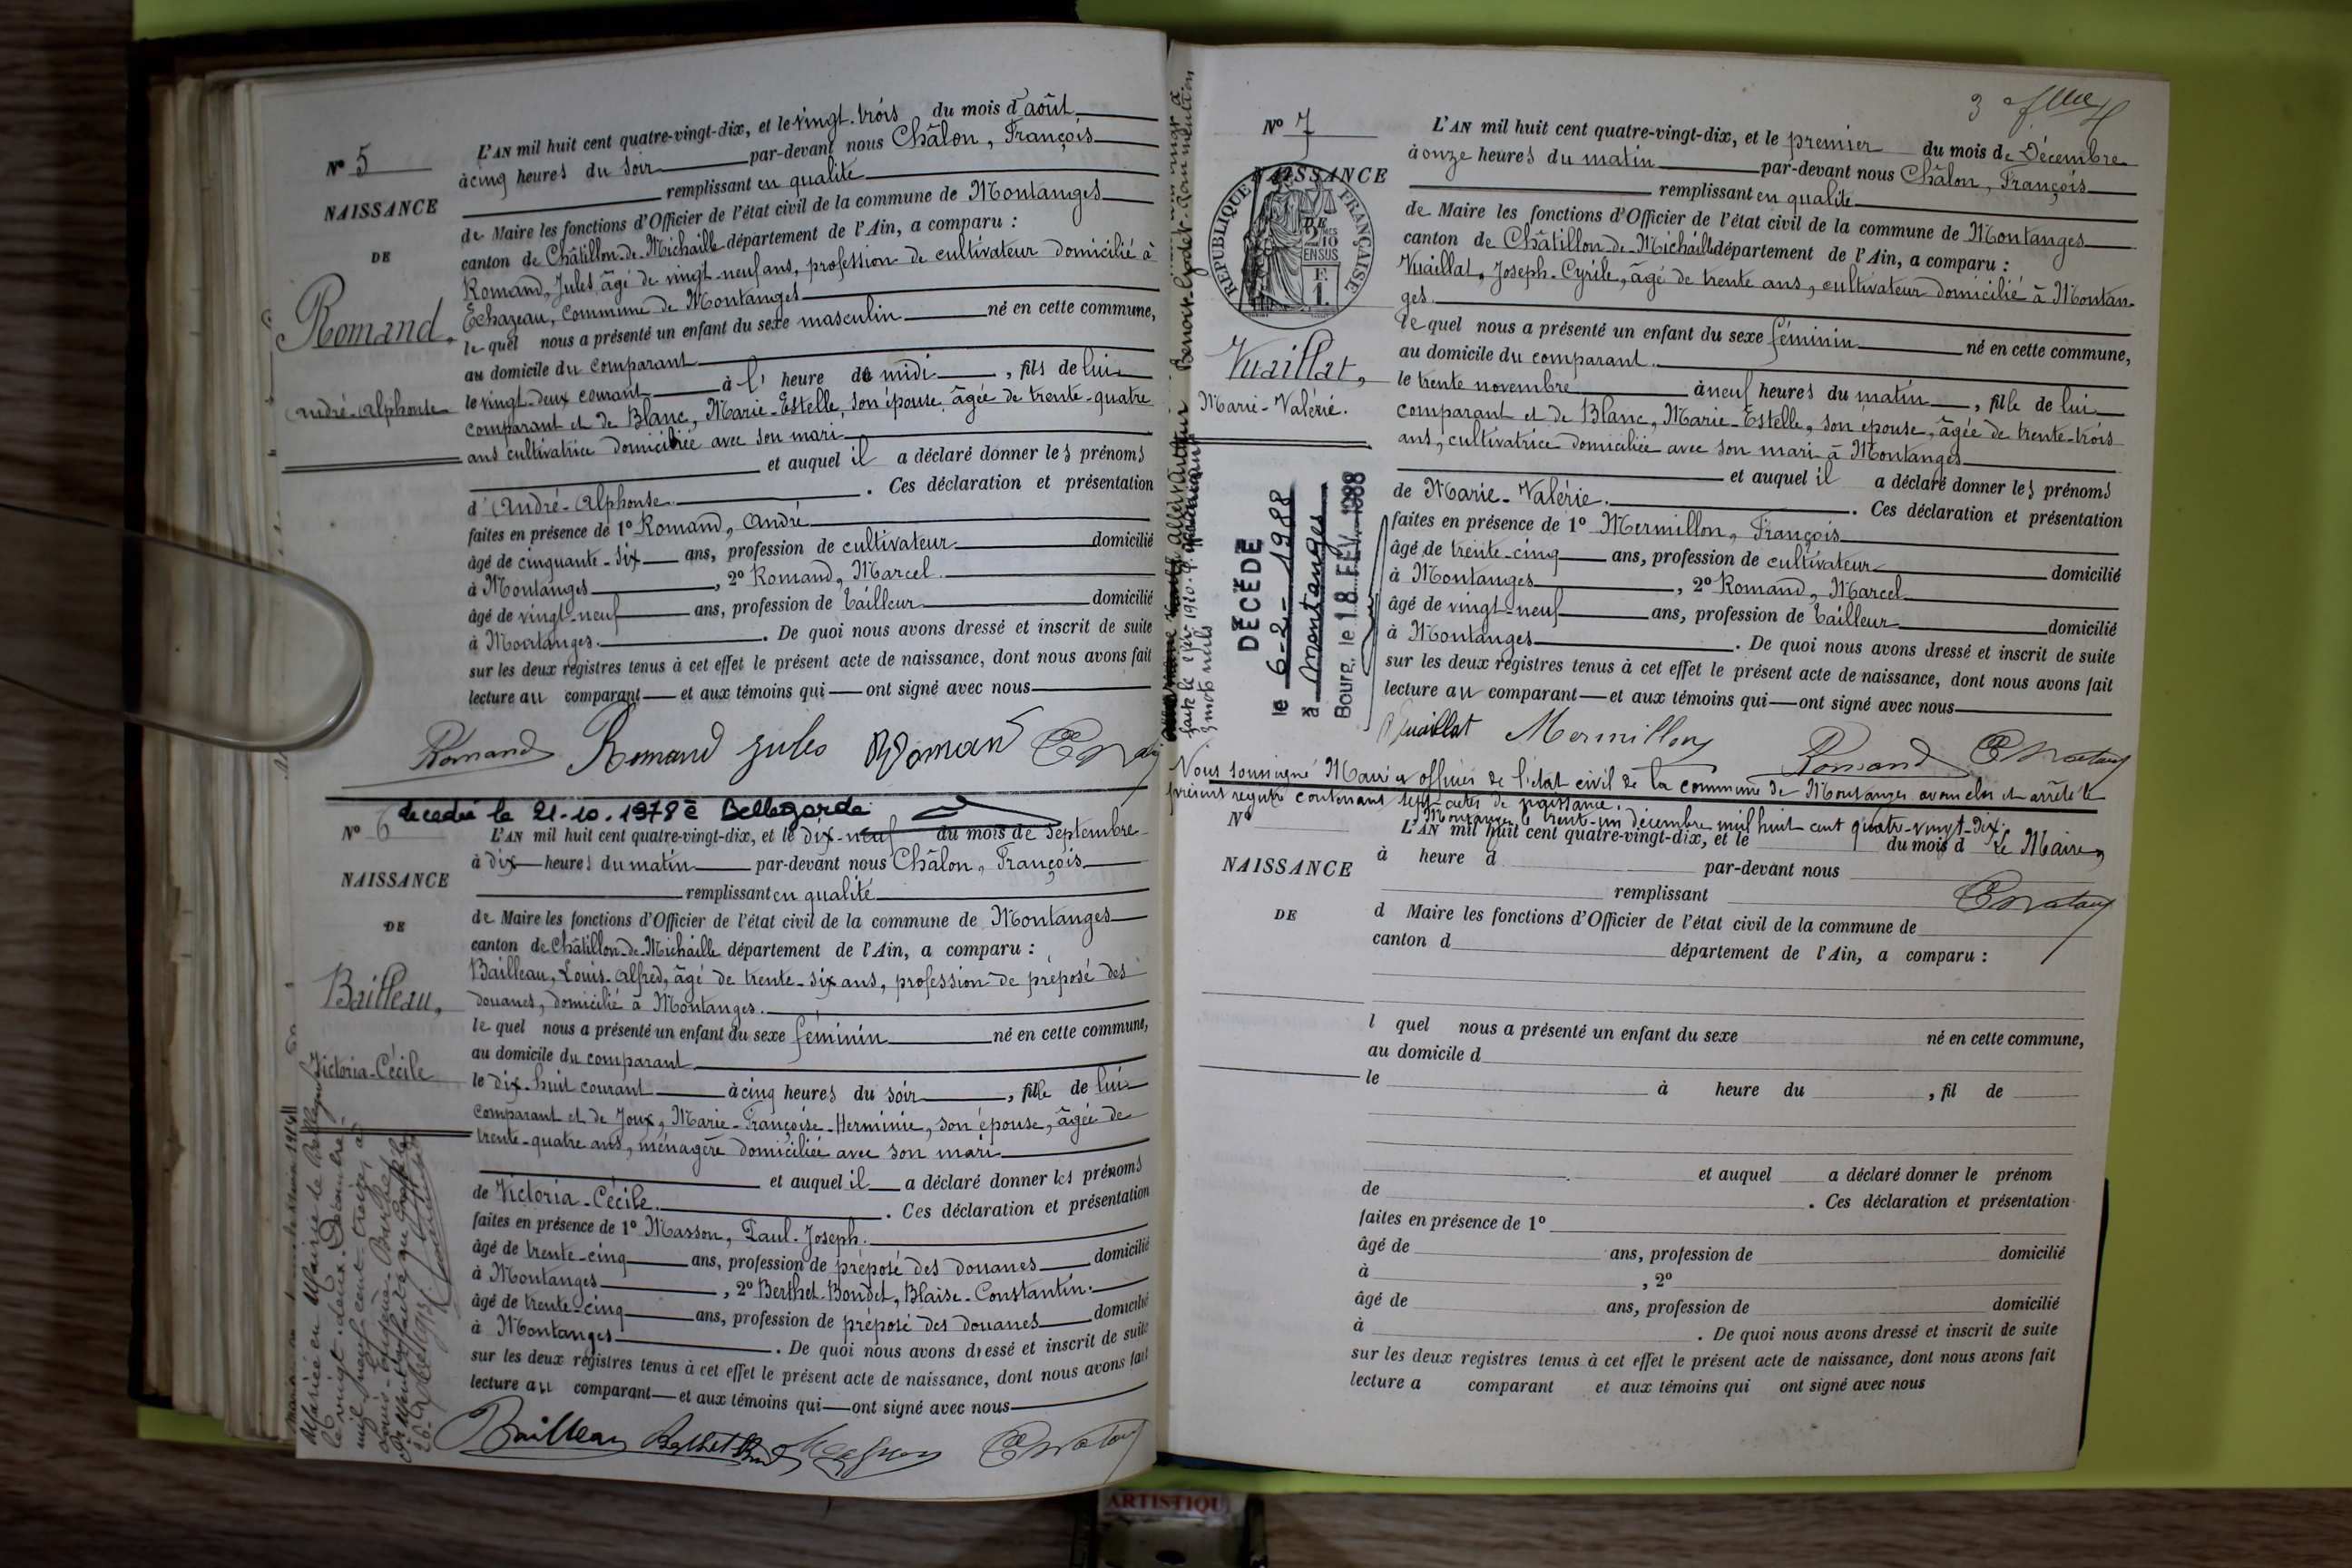 N° 5
NAISSANCE
DE
Romand,
André-Alphonse
L'AN mil huit cent quatre-vingt-dix, et le vingt-trois du mois d'août
à cinq heures du soir par-devant nous Châlon, François
remplissant en qualité
de Maire les fonctions d'Officier de l'état civil de la commune de Montanges
canton de Châtillon-de-Michaille département de l'Ain, a comparu :
Romand, Jules, âgé de vingt-neuf ans, profession de cultivateur domicilié à
Échazeau, commune de Montanges
lequel nous a présenté un enfant du sexe masculin né en cette commune,
au domicile du comparant
le vingt-deux courant à l' heure de midi, fils de lui
comparant et de Blanc, Marie-Estelle, son épouse, âgée de trente-quatre
ans cultivatrice domiciliée avec son mari
et auquel il a déclaré donner les prénoms
d'André-Alphonse. Ces déclaration et présentation
faites en présence de 1° Romand, André
âgé de cinquante-six ans, profession de cultivateur domicilié
à Montanges, 2° Romand, Marcel.
âgé de vingt-neuf ans, profession de tailleur domicilié
à Montanges. De quoi nous avons dressé et inscrit de suite
sur les deux registres tenus à cet effet le présent acte de naissance, dont nous avons fait
lecture au comparant et aux témoins qui ont signé avec nous
Romand Romand Jules Romand
décédée le 21-10-1978 à Bellegarde
N° 6
NAISSANCE
DE
Bailleau,
Victoria-Cécile
L'AN mil huit cent quatre-vingt-dix, et le dix-neuf du mois de Septembre
à dix heures du matin par-devant nous Châlon, François
remplissant en qualité
de Maire les fonctions d'Officier de l'état civil de la commune de Montanges
canton de Châtillon-de-Michaille département de l'Ain, a comparu :
Bailleau, Louis-Alfred, âgé de trente-six ans, profession de préposé des
douanes, domicilié à Montanges.
lequel nous a présenté un enfant du sexe féminin né en cette commune,
au domicile du comparant
le dix-huit courant à cinq heures du soir, fille de lui
comparant et de Joux, Marie-Françoise-Herminie, son épouse, âgée de
trente-quatre ans, ménagère domiciliée avec son mari
et auquel il a déclaré donner les prénoms
de Victoria-Cécile. Ces déclaration et présentation
faites en présence de 1° Masson, Paul-Joseph.
âgé de trente-cinq ans, profession de préposé des douanes domicilié
à Montanges, 2° Berthet-Bondet, Blaise-Constantin.
âgé de trente-cinq ans, profession de préposé des douanes domicilié
à Montanges. De quoi nous avons dressé et inscrit de suite
sur les deux registres tenus à cet effet le présent acte de naissance, dont nous avons fait
lecture au comparant et aux témoins qui ont signé avec nous
Bailleau Berthet Masson
Mariée en Mairie de Bellegarde
le vingt-deux Décembre
mil neuf cent treize, à
3
N° 7
NAISSANCE
DE
RÉPUBLIQUE FRANÇAISE
Vuaillat,
Marie-Valérie.
DÉCÉDÉ
le 6-2-1988
à Montanges
Bourg, le 18 FEV. 1988
L'AN mil huit cent quatre-vingt-dix, et le premier du mois de Décembre
à onze heures du matin par-devant nous Châlon, François
remplissant en qualité
de Maire les fonctions d'Officier de l'état civil de la commune de Montanges
canton de Châtillon-de-Michaille département de l'Ain, a comparu :
Vuaillat, Joseph-Cyrile, âgé de trente ans, cultivateur domicilié à Montan-
ges.
lequel nous a présenté un enfant du sexe féminin né en cette commune,
au domicile du comparant.
le trente novembre à neuf heures du matin, fille de lui
comparant et de Blanc, Marie-Estelle, son épouse, âgée de trente-trois
ans, cultivatrice domiciliée avec son mari à Montanges
et auquel il a déclaré donner les prénoms
de Marie-Valérie. Ces déclaration et présentation
faites en présence de 1° Mermillon, François
âgé de trente-cinq ans, profession de cultivateur domicilié
à Montanges, 2° Romand, Marcel
âgé de vingt-neuf ans, profession de tailleur domicilié
à Montanges. De quoi nous avons dressé et inscrit de suite
sur les deux registres tenus à cet effet le présent acte de naissance, dont nous avons fait
lecture au comparant et aux témoins qui ont signé avec nous
Vuaillat Mermillon Romand
Nous soussigné Maire officier de l'état civil de la commune de Montanges avons clos et arrêté le
présent registre contenant sept actes de naissance.
Montanges, le trente-un décembre mil huit cent quatre-vingt-dix.
Le Maire,
N°
NAISSANCE
DE
L'AN mil huit cent quatre-vingt-dix, et le du mois d
à heure d par-devant nous
remplissant
d Maire les fonctions d'Officier de l'état civil de la commune de
canton d département de l'Ain, a comparu :
l quel nous a présenté un enfant du sexe né en cette commune,
au domicile d
le à heure du , fil de
et auquel a déclaré donner le prénom
de . Ces déclaration et présentation
faites en présence de 1°
âgé de ans, profession de domicilié
à , 2°
âgé de ans, profession de domicilié
à . De quoi nous avons dressé et inscrit de suite
sur les deux registres tenus à cet effet le présent acte de naissance, dont nous avons fait
lecture a comparant et aux témoins qui ont signé avec nous
ARTISTIQU